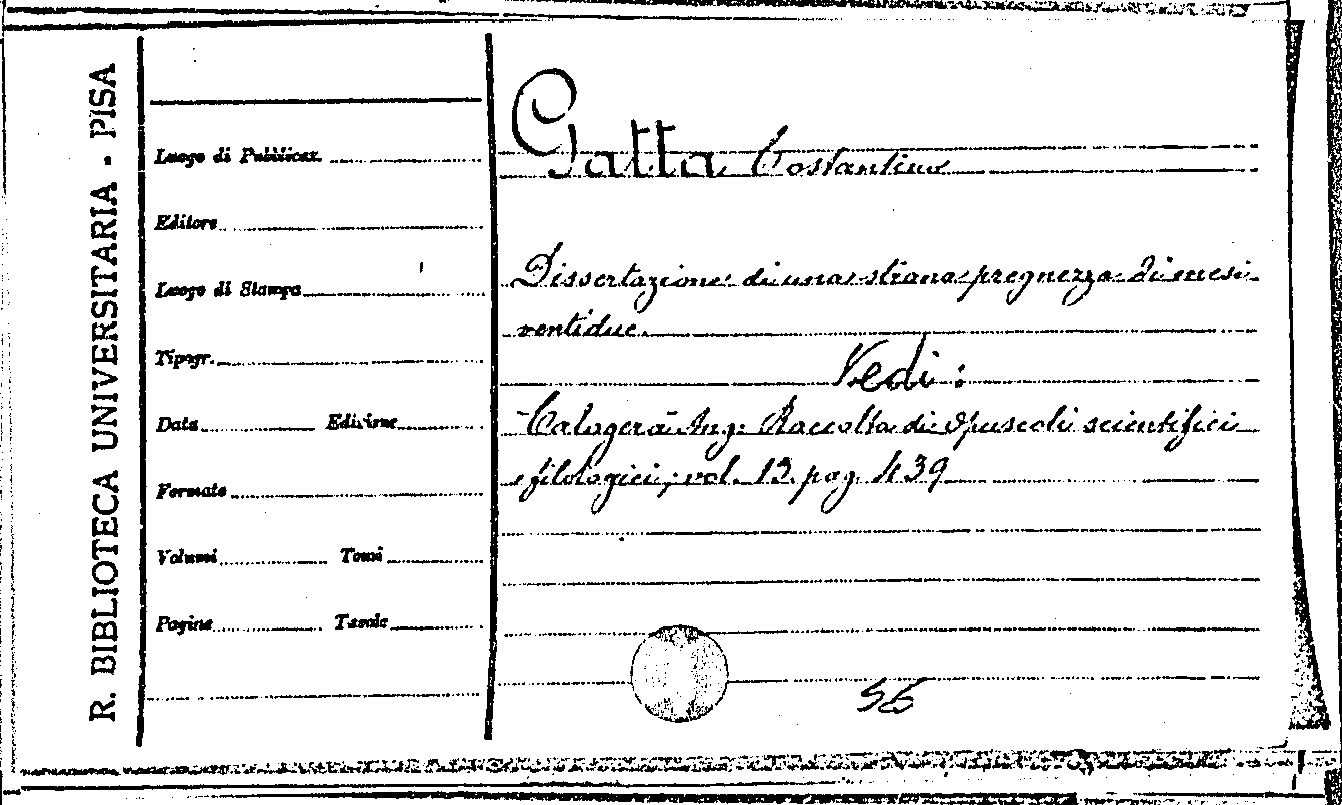 R. BIBLIOTECA UNIVERSITARIA - PISA
Luogo di Pubblicaz.
Editore
Luogo di Stampa
Tipogr.
Data Edizione
Formato
Volumi Tomi
Pagine Tavole
Gatta Costantino
Dissertazione di una strana pregnezza di mesi
ventidue.
Vedi:
Calogerà Ang. Raccolta di opuscoli scientifici
e filologici; vol. 13. pag. 439
56